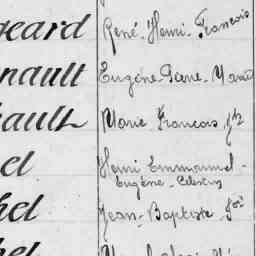 geard René-Henri-François
nault Eugène-Pierre-Marie
hault Marie François Jh
el Henri Emmanuel-
Eugène-Célestin
hel Jean-Baptiste-Fois
hel